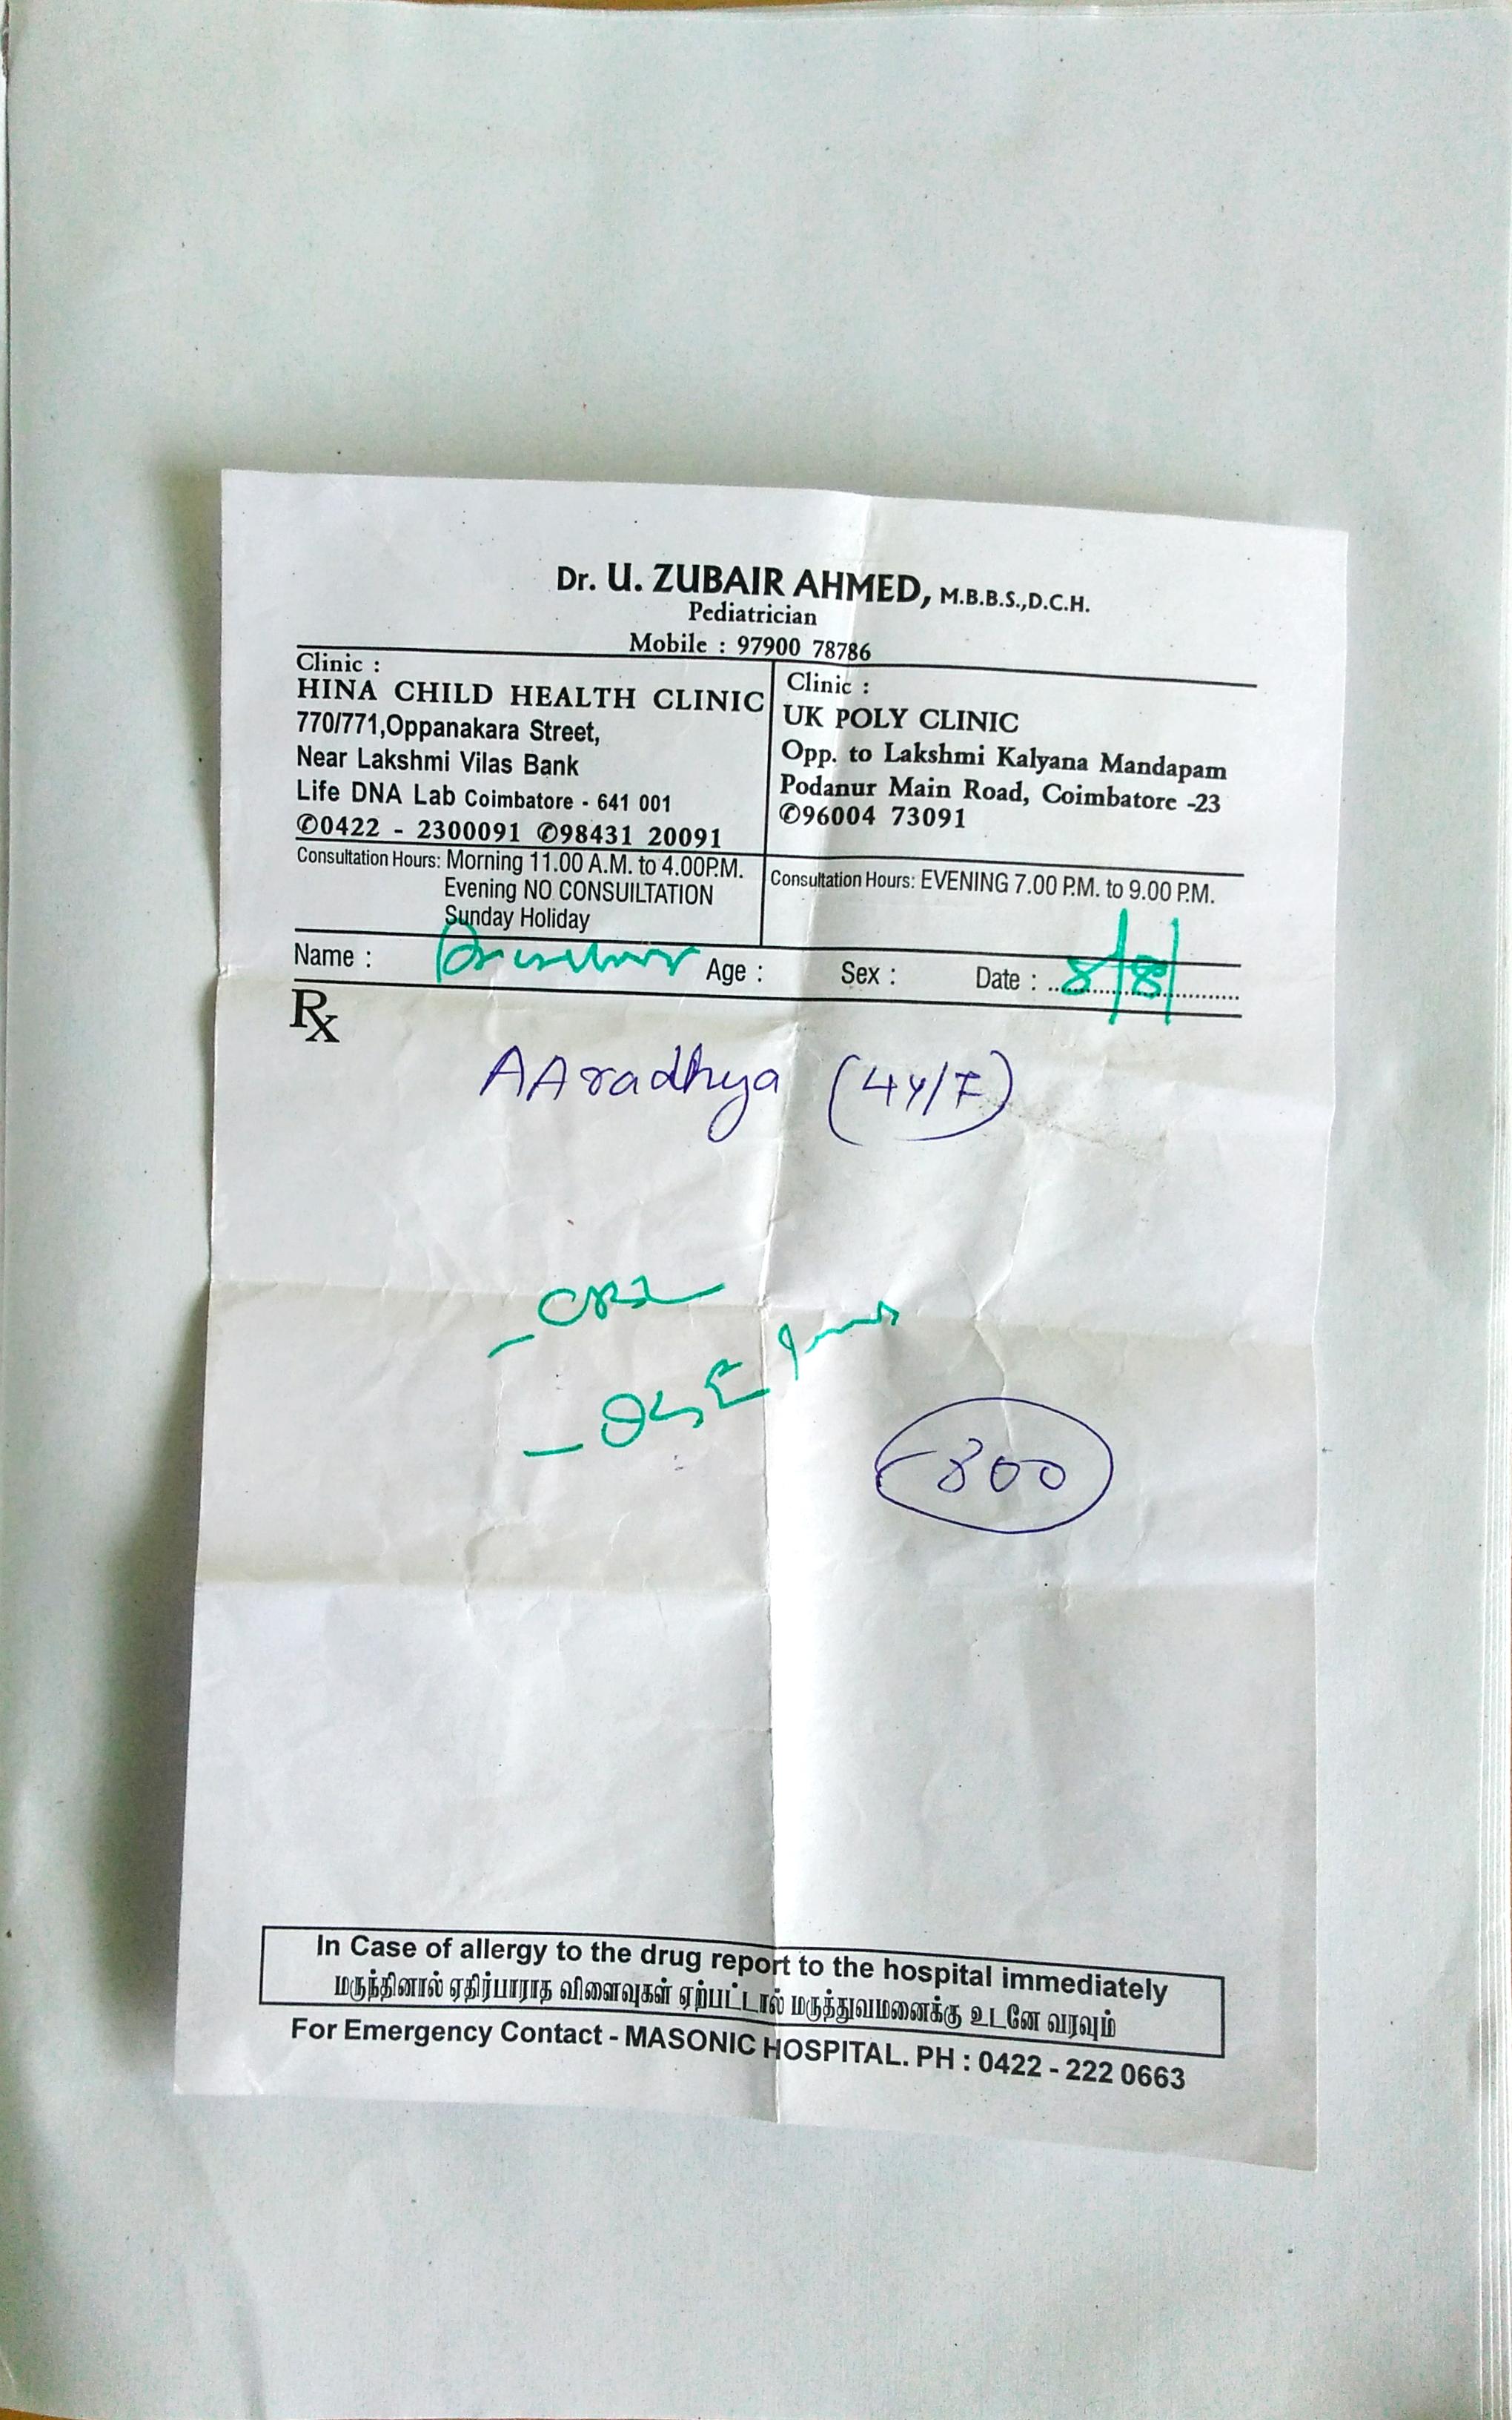 Dr. U. ZUBAIR AHMED, M.B.B.S.,D.C.H.
Pediatrician
Mobile : 97900 78786
Clinic :
HINA CHILD HEALTH CLINIC
770/771,Oppanakara Street,
Near Lakshmi Vilas Bank
Life DNA Lab Coimbatore - 641 001
✆0422 - 2300091 ✆98431 20091
Consultation Hours: Morning 11.00 A.M. to 4.00P.M.
Evening NO CONSUILTATION
Sunday Holiday
Clinic :
UK POLY CLINIC
Opp. to Lakshmi Kalyana Mandapam
Podanur Main Road, Coimbatore -23
✆96004 73091
Consultation Hours: EVENING 7.00 P.M. to 9.00 P.M.
Name : Age : Sex : Date : 8/8/
Rx
AAradhya (4y/F)
800
In Case of allergy to the drug report to the hospital immediately
மருந்தினால் ஏதிர்பாராத விளைவுகள் ஏற்பட்டால் மருத்துவமனைக்கு உடனே வரவும்
For Emergency Contact - MASONIC HOSPITAL. PH : 0422 - 222 0663